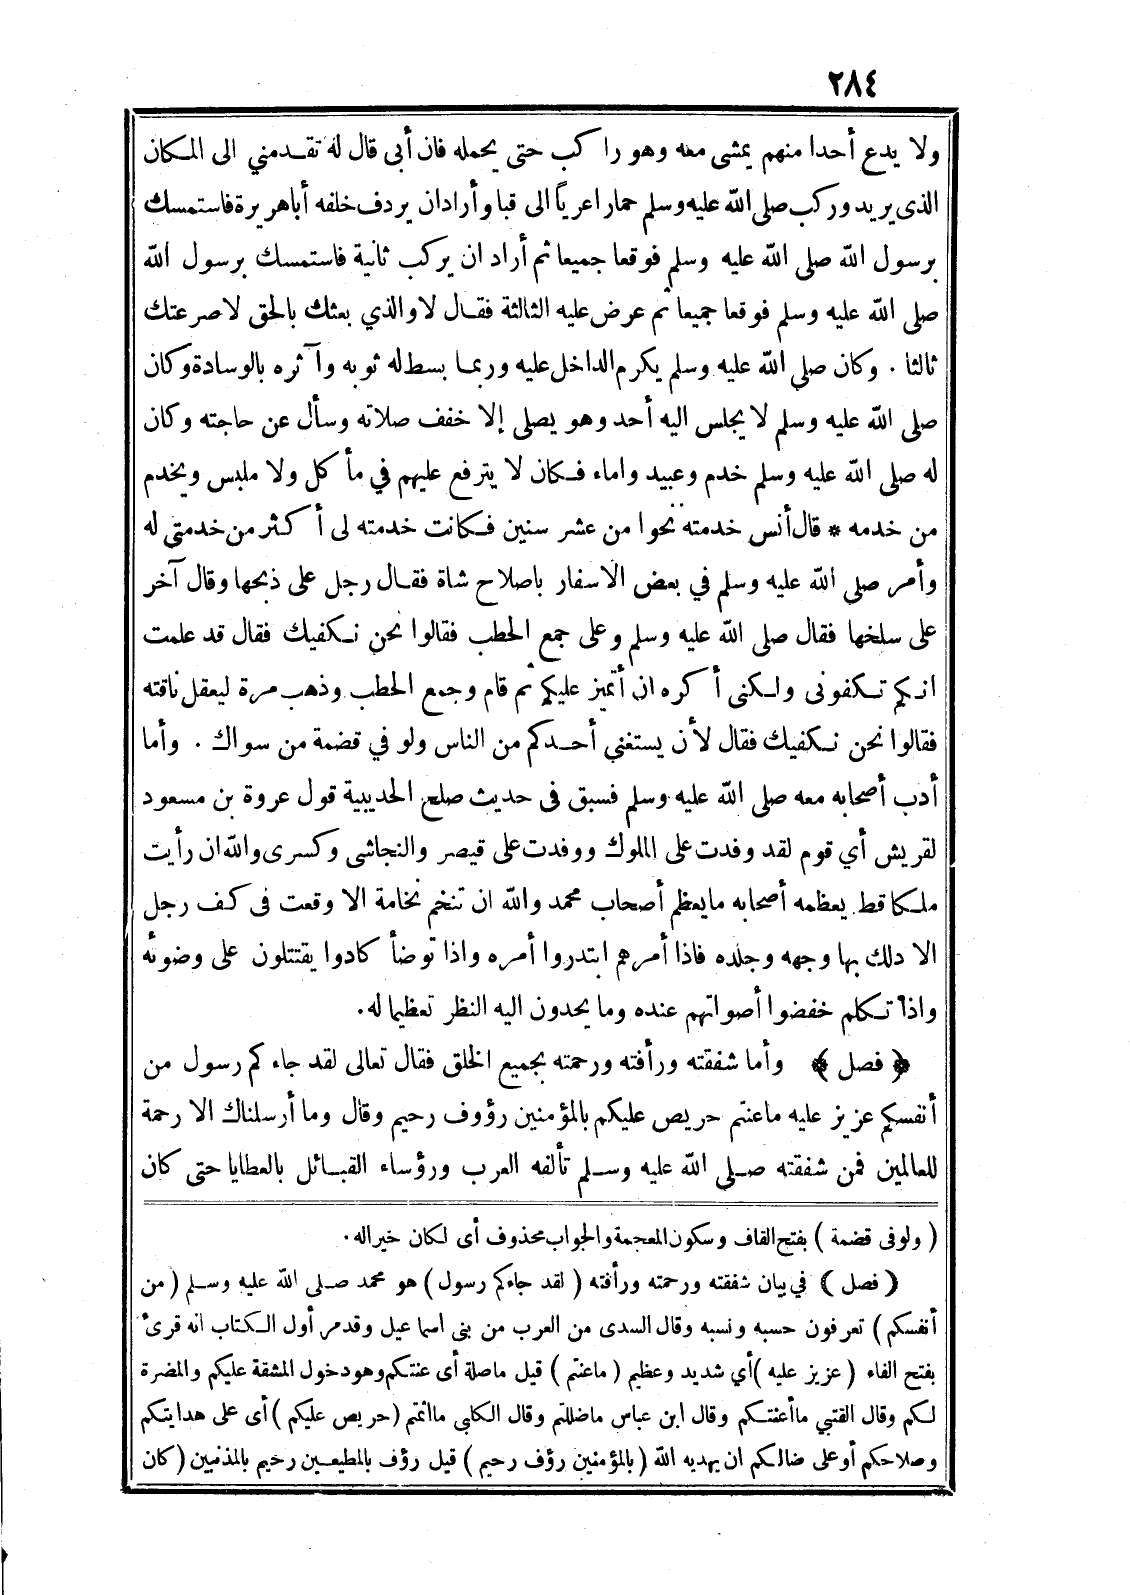 ٢٨٤
ولا يدع أحدا منهم يمشى معه وهو راكب حتى يحمله فان أبى قال له تقدمني الى المكان
الذى يريد وركب صلى الله عليه وسلم حمارا عرياً الى قبا وأراد ان يردف خلفه أبا هريرة فاستمسك
برسول الله صلى الله عليه وسلم فوقعا جميعا ثم أراد ان يركب ثانية فاستمسك برسول الله
صلى الله عليه وسلم فوقعا جميعا ثم عرض عليه الثالثة فقال لا والذي بعثك بالحق لا صرعتك
ثالثا . وكان صلى الله عليه وسلم يكرم الداخل عليه وربما بسط له ثوبه وآثره بالوسادة وكان
صلى الله عليه وسلم لا يجلس اليه أحد وهو يصلى إلا خفف صلاته وسأل عن حاجته وكان
له صلى الله عليه وسلم خدم وعبيد واماء فكان لا يترفع عليهم في مأكل ولا ملبس ويخدم
من خدمه * قال أنس خدمته نحوا من عشر سنين فكانت خدمته لى أكثر من خدمتى له
وأمر صلى الله عليه وسلم في بعض الاسفار باصلاح شاة فقال رجل على ذبحها وقال آخر
على سلخها فقال صلى الله عليه وسلم وعلى جمع الحطب فقالوا نحن نكفيك فقال قد علمت
انكم تكفونى ولكنى أكره ان أتميز عليكم ثم قام وجمع الحطب وذهب مرة ليعقل ناقته
فقالوا نحن نكفيك فقال لأن يستغني أحدكم من الناس ولو في قضمة من سواك . وأما
أدب أصحابه معه صلى الله عليه وسلم فسبق فى حديث صلح الحديبية قول عروة بن مسعود
لقريش أي قوم لقد وفدت على الملوك ووفدت على قيصر والنجاشى وكسرى والله ان رأيت
ملكا قط يعظمه أصحابه ما يعظم أصحاب محمد والله ان تنخم نخامة الا وقعت فى كف رجل
الا دلك بها وجهه وجلده فاذا أمرهم ابتدروا أمره واذا توضأ كادوا يقتتلون على وضوئه
واذا تكلم خفضوا أصواتهم عنده وما يحدون اليه النظر تعظيما له.
﴿ فصل ﴾ وأما شفقته ورأفته ورحمته بجميع الخلق فقال تعالى لقد جاءكم رسول من
أنفسكم عزيز عليه ما عنتم حريص عليكم بالمؤمنين رؤوف رحيم وقال وما أرسلناك الا رحمة
للعالمين فمن شفقته صلى الله عليه وسلم تألفه العرب ورؤساء القبائل بالعطايا حتى كان
( ولو فى قضمة ) بفتح القاف وسكون المعجمة والجواب محذوف أى لكان خيرا له.
( فصل ) في بيان شفقته ورحمته ورأفته ( لقد جاءكم رسول ) هو محمد صلى الله عليه وسلم ( من
أنفسكم ) تعرفون حسبه ونسبه وقال السدى من العرب من بنى اسماعيل وقدمر أول الكتاب انه قرئ
بفتح الفاء ( عزيز عليه ) أي شديد وعظيم ( ما عنتم ) قيل ماصلة أى عنتكم وهو دخول المشقة عليكم والمضرة
لكم وقال القتبي ما أعنتكم وقال ابن عباس ما ضللتم وقال الكلبى ما أثمتم ( حريص عليكم ) أى على هدايتكم
وصلاحكم أو على ضالكم ان يهديه الله ( بالمؤمنين رؤف رحيم ) قيل رؤف بالمطيعين رحيم بالمذنبين ( كان